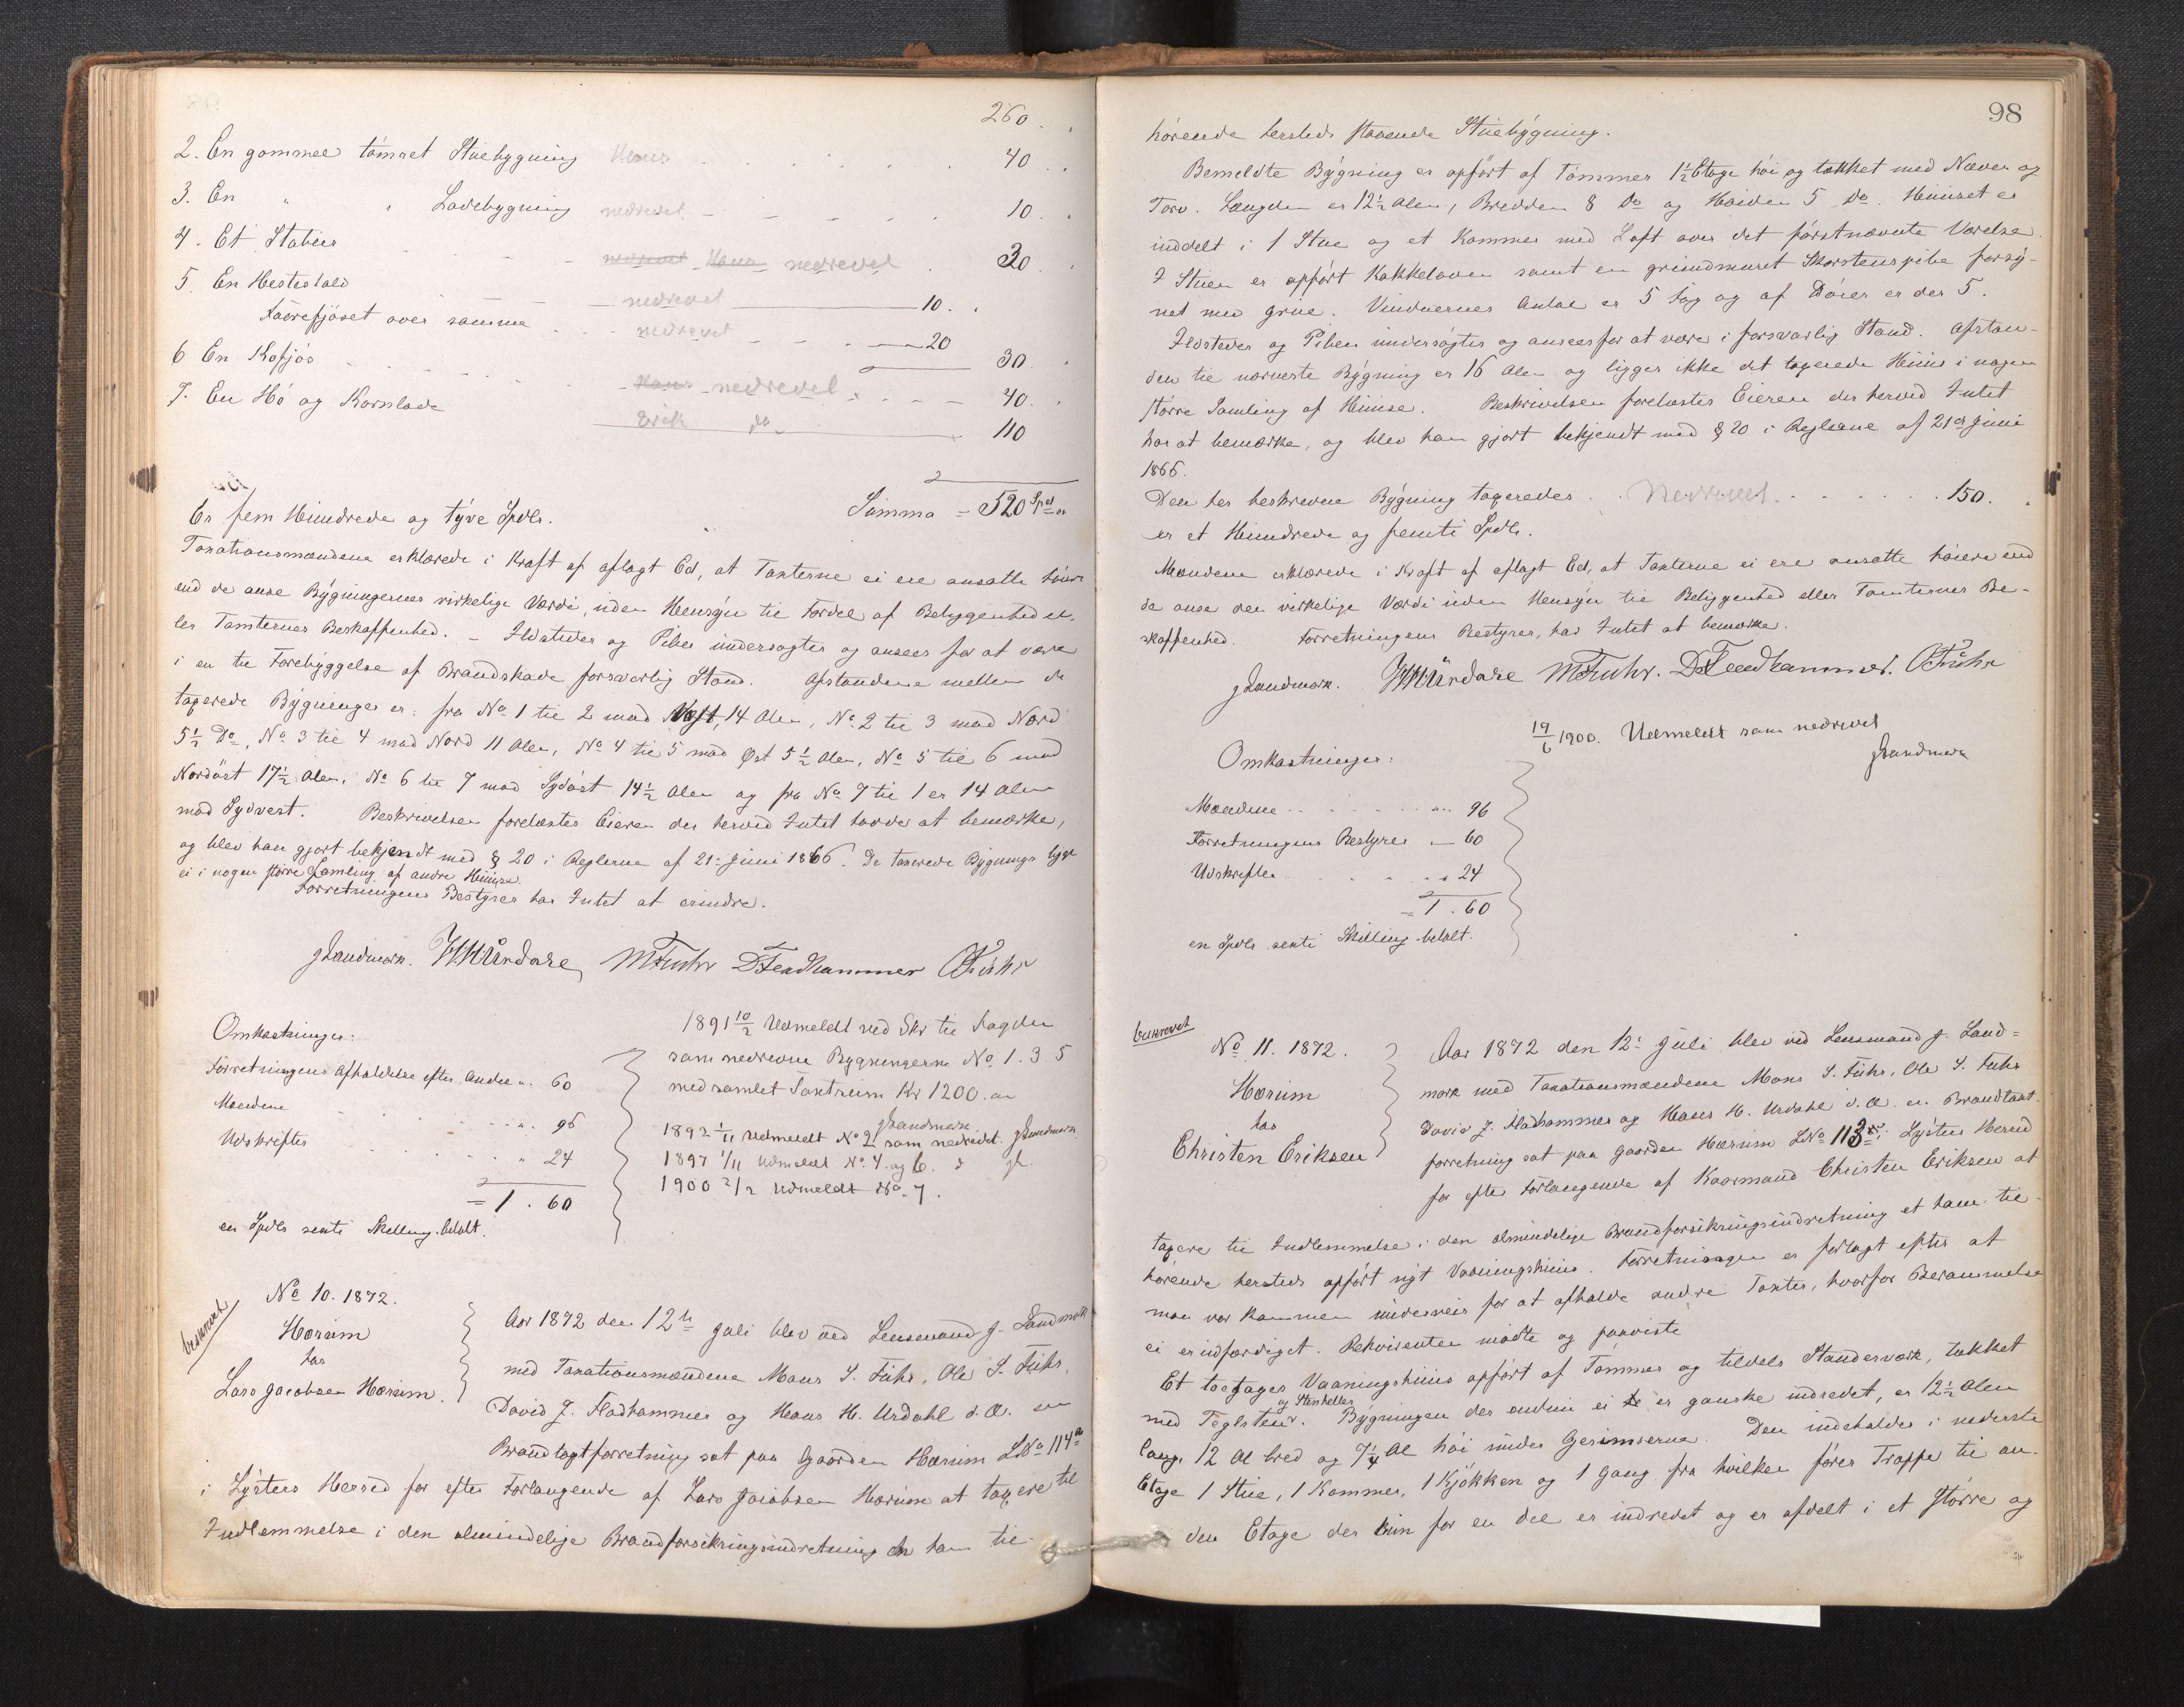 260
2. En gammel tømret Stuebygning Hans 40
3. En " " Ladebygning nedrevet 10
4. Et Stabur nedrevet Hans nedrevet 30
5. En Hestestald nedrevet 10
Faarefjøset over samme nedrevet 20
6 En Kofjøs Hans nedrevet 30
7. En Hø og Kornlade 40
Erik do 110
Summa = 520 Spd
Er fem Hundrede og tyve Spdlr.
Taxationsmændene erklærede i Kraft af aflagt Ed, at Taxterne ei ere ansatte høiere
end de anse Bygningernes virkelige Værdi, uden Hensyn til Fordel af Beliggenhed el-
ler Tomternes Beskaffenhed. – Ildsteder og Piber undersøgtes og ansees for at være
i en til Forebyggelse af Brandskade forsvarlig Stand. Afstandene mellem de
taxerede Bygninger er: fra No 1 til 2 mod Vest, 14 Alen, No 2 til 3 mod Nord
5½ Do, No 3 til 4 mod Nord 11 Alen, No 4 til 5 mod Øst 5½ Alen, No 5 til 6 mod
Nordøst 17½ Alen, No 6 til 7 mod Sydøst 14½ Alen og fra No 7 til 1 er 14 Alen
mod Sydvest. Beskrivelsen forelæstes Eieren der herved Intet havde at bemærke,
og blev han gjort bekjendt med § 20 i Reglerne af 21de Juni 1866. De taxerede Bygninger ligge
ei i nogen større Samling af andre Huuse.
Forretningens Bestyrer har Intet at erindre.
J Landmark. HHUrdahl, MFuhr DFladhammer OFuhr
Omkostninger:
Forretningens Afholdelse efter Andel " 60
Mændene " 96
Udskrifter " 24
= 1 . 60
en Spdlr sexti Skilling betalt.
1891 10/2 Udmeldt ved Skr til Fogden
som nedrevne Bygningerne No 1. 3 5
med samlet Taxtsum Kr 1200.
JLandmark
1892 1/11 Udmeldt No 2 som nedrevet. JLandmark
1897 1/11 Udmeldt No 4. og 6.
1900 2/2 Udmeldt No. 7.
No 10. 1872.
beskrevet
Hørum
hos
Lars Jacobsen Hørum.
Aar 1872 den 12te Juli blev ved Lensmand J. Landmark
med Taxationsmændene Mons S. Fuhr, Ole S. Fuhr,
David J. Fladhammer og Hans H. Urdahl d. Æ. en
Brandtaxtforretning sat paa Gaarden Hørum LNo 114a
i Lysters Herred for efter Forlangende af Lars Jacobsen Hørum at taxere til
Indlemmelse i den almindelige Brandforsikringsindretning en ham til-
98
hørende hersteds staaende Stuebygning.
Bemeldte Bygning er opført af Tømmer 1½ Etage høi og tækket med Næver og
Torv. Længden er 12½ Alen, Bredden 8 Do og Høiden 5 Do. Huuset er
inddelt i 1 Stue og et Kammer med Loft over det førstnævnte Værelse.
I Stuen er opført Kakkelovn samt en grundmuret Skorstenspibe forsy-
net med grue. Vinduernes Antal er 5 Fag og af Dører er der 5.
Ildsteder og Piben undersøgtes og ansees for at være i forsvarlig Stand. Afstan-
den til nærmeste Bygning er 16 Alen og ligger ikke det taxerede Huus i nogen
større Samling af Huuse. Beskrivelsen forelæstes Eieren der herved Intet
har at bemærke, og blev han gjort bekjendt med § 20 i Reglerne af 21de Juni
1866.
Den her beskrevne Bygning taxeredes Nedrevet 150.
er et Hundrede og femti Spdlr.
Mændene erklærede i Kraft af aflagt Ed, at Taxterne ei ere ansatte høiere end
de anse den virkelige Værdi uden Hensyn til Beliggenhed eller Tomternes Be-
skaffenhed. Forretningens Bestyrer, har Intet at bemærke.
J Landmark. HHUrdahl MFuhr. DFladhammer. OFuhr
19/6 1900. Udmeldt som nedrevet
JLandmark
Omkostninger:
Mændene 96
Forretningens Bestyrer – 60
Udskrifter 24
= 1 . 60
en Spdlr sexti Skilling betalt.
beskrevet
No 11. 1872.
Hørum
hos
Christen Eriksen
Aar 1872 den 12te Juli blev ved Lensmand J. Land=
mark med Taxationsmændene Mons S. Fuhr, Ole S. Fuhr
David J. Fladhammer og Hans H. Urdahl d. Æ. en Brandtaxt-
forretning sat paa Gaarden Hørum LNo 113 i Lysters Herred
for efter Forlangende af Kaarmand Christen Eriksen at
taxere til Indlemmelse i den almindelige Brandforsikringsindretning et ham til-
hørende hersteds opført nyt Vaaningshuus. Forretningen er forlagt efter at
man var kommen underveis for at afholde andre Taxter, hvorfor Berammelse
ei er udfærdiget. Rekvirenten mødte og paaviste
Et toetages Vaaningshuus opført af Tømmer og tildels Standerværk, tækket
med Teglsten og Stenheller. Bygningen der endnu ei er ganske indredet, er 12½ Alen
lang, 12 Al bred og 7¼ Al høi under Gesimserne. Den indeholder i nederste
Etage 1 Stue, 1 Kammer, 1 Kjøkken og 1 Gang fra hvilken fører Trappe til an-
den Etage der kun for en Del er indredet og er afdelt i et større og